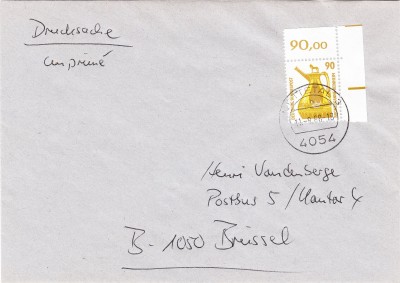 Drucksache
imprimé
90,00
90
4054
Henri Vandenberge
Postbus 5 / Kantor 4
B-1050 Brüssel